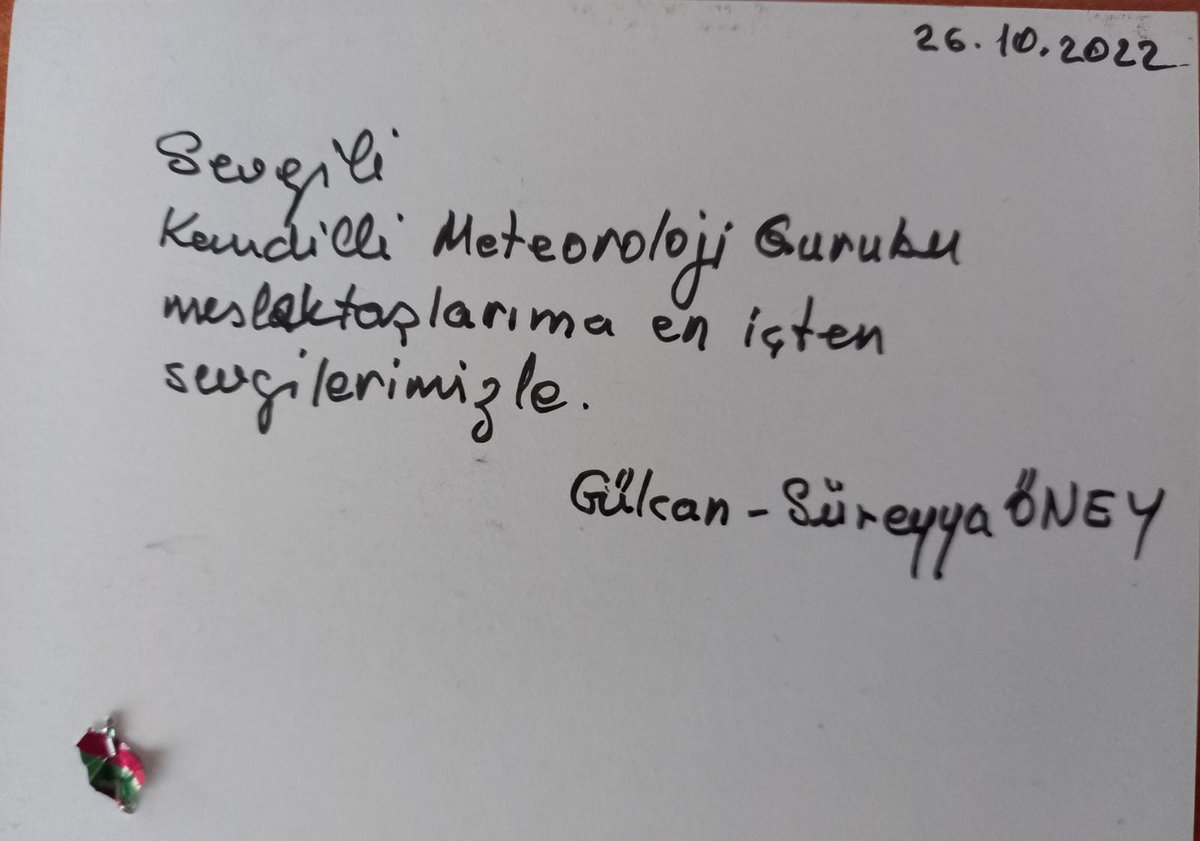 26.10.2022
Sevgili
Kandilli Meteoroloji Gurubu
meslektaşlarıma en içten
sevgilerimizle.
Gülcan - Süreyya ÖNEY